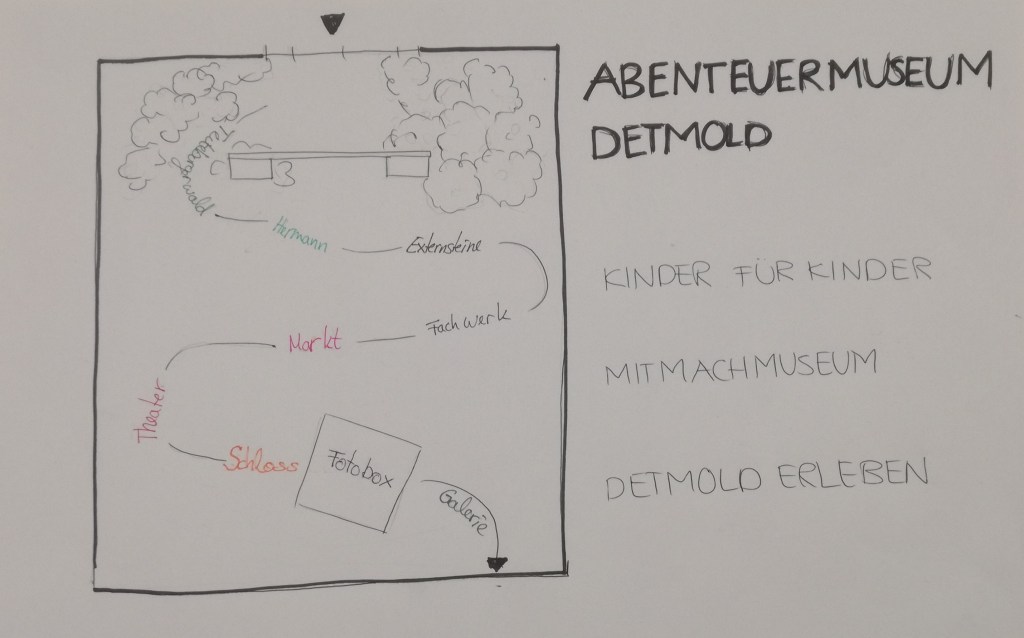 ABENTEUERMUSEUM
DETMOLD
KINDER FÜR KINDER
MITMACHMUSEUM
DETMOLD ERLEBEN
Teutoburgerwald
Hermann
Externsteine
Fachwerk
Markt
Theater
Schloss
Fotobox
Galerie